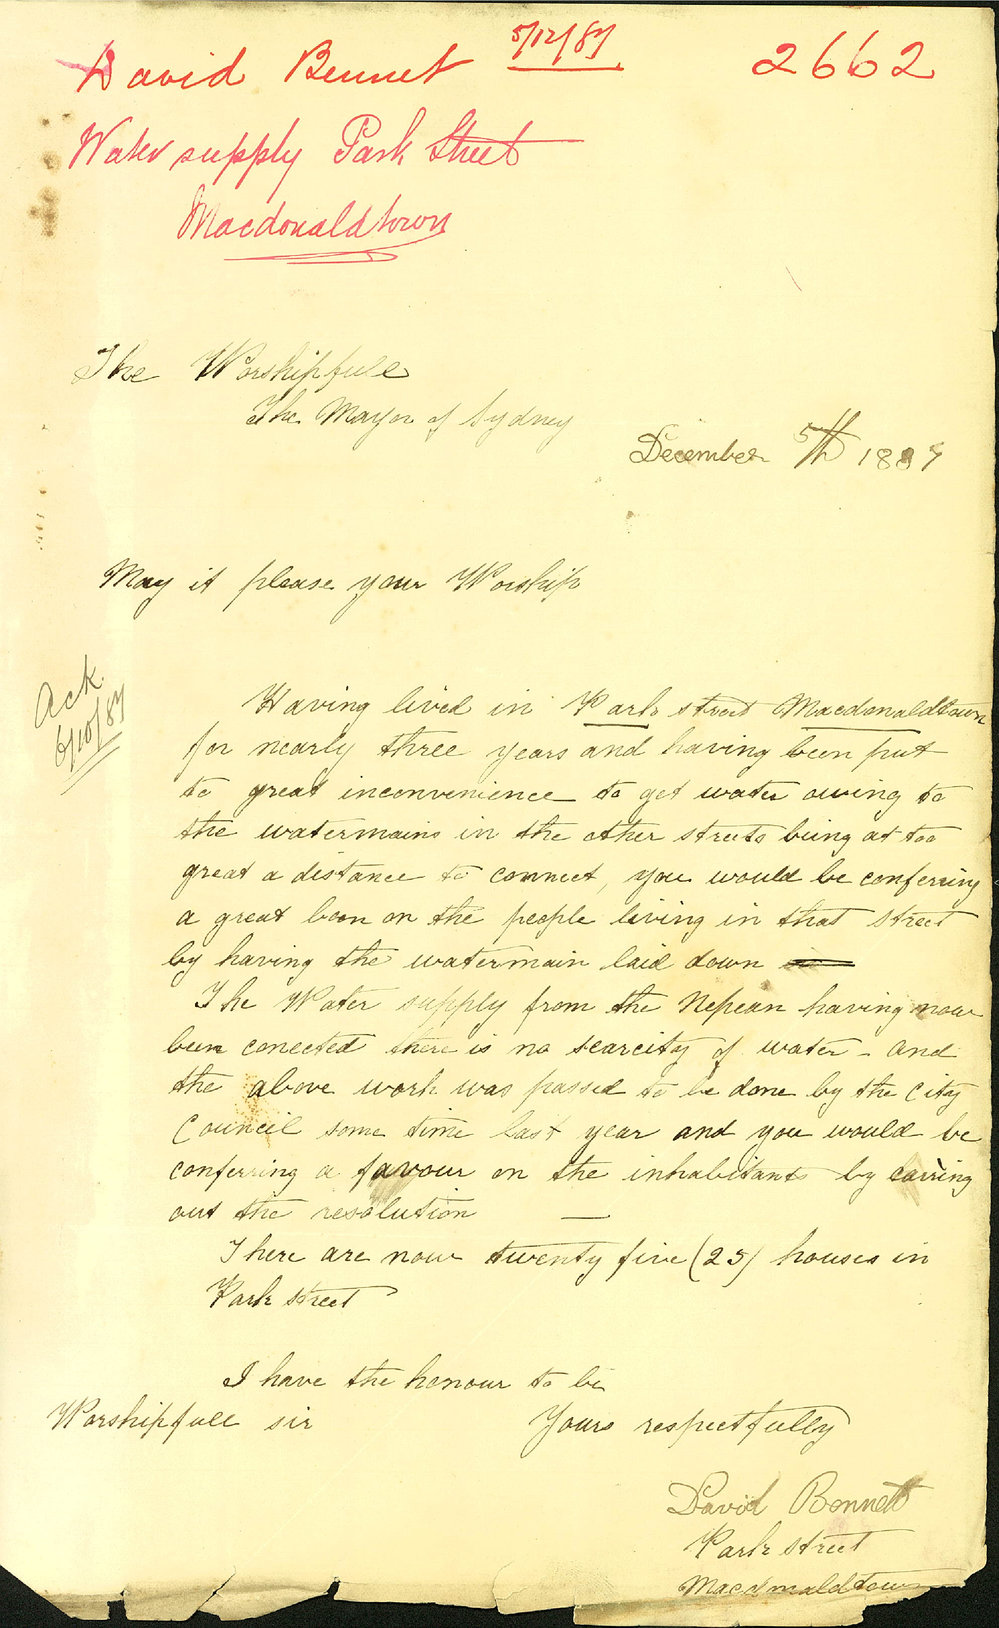 David Bennet 5/12/87 2662
Water supply Park Street
Macdonaldtown
The Worshipfull
The Mayor of Sydney
December 5th 1887
May it please your Worship
Ack
6/10/87
Having lived in Park street Macdonaldtown
for nearly three years and having been put
to great inconvenience to get water owing to
the watermains in the other streets being at too
great a distance to connect, you would be conferring
a great boon on the people living in that street
by having the watermain laid down
The Water supply from the Nepean having now
been conected there is no scarcity of water - and
the above work was passed to be done by the City
Council some time last year and you would be
conferring a favour on the inhabitants by carring
out the resolution —
There are now twenty five (25) houses in
Park street
I have the honour to be
Worshipfull sir Yours respectfully
David Bennett
Park street
Macdonaldtown